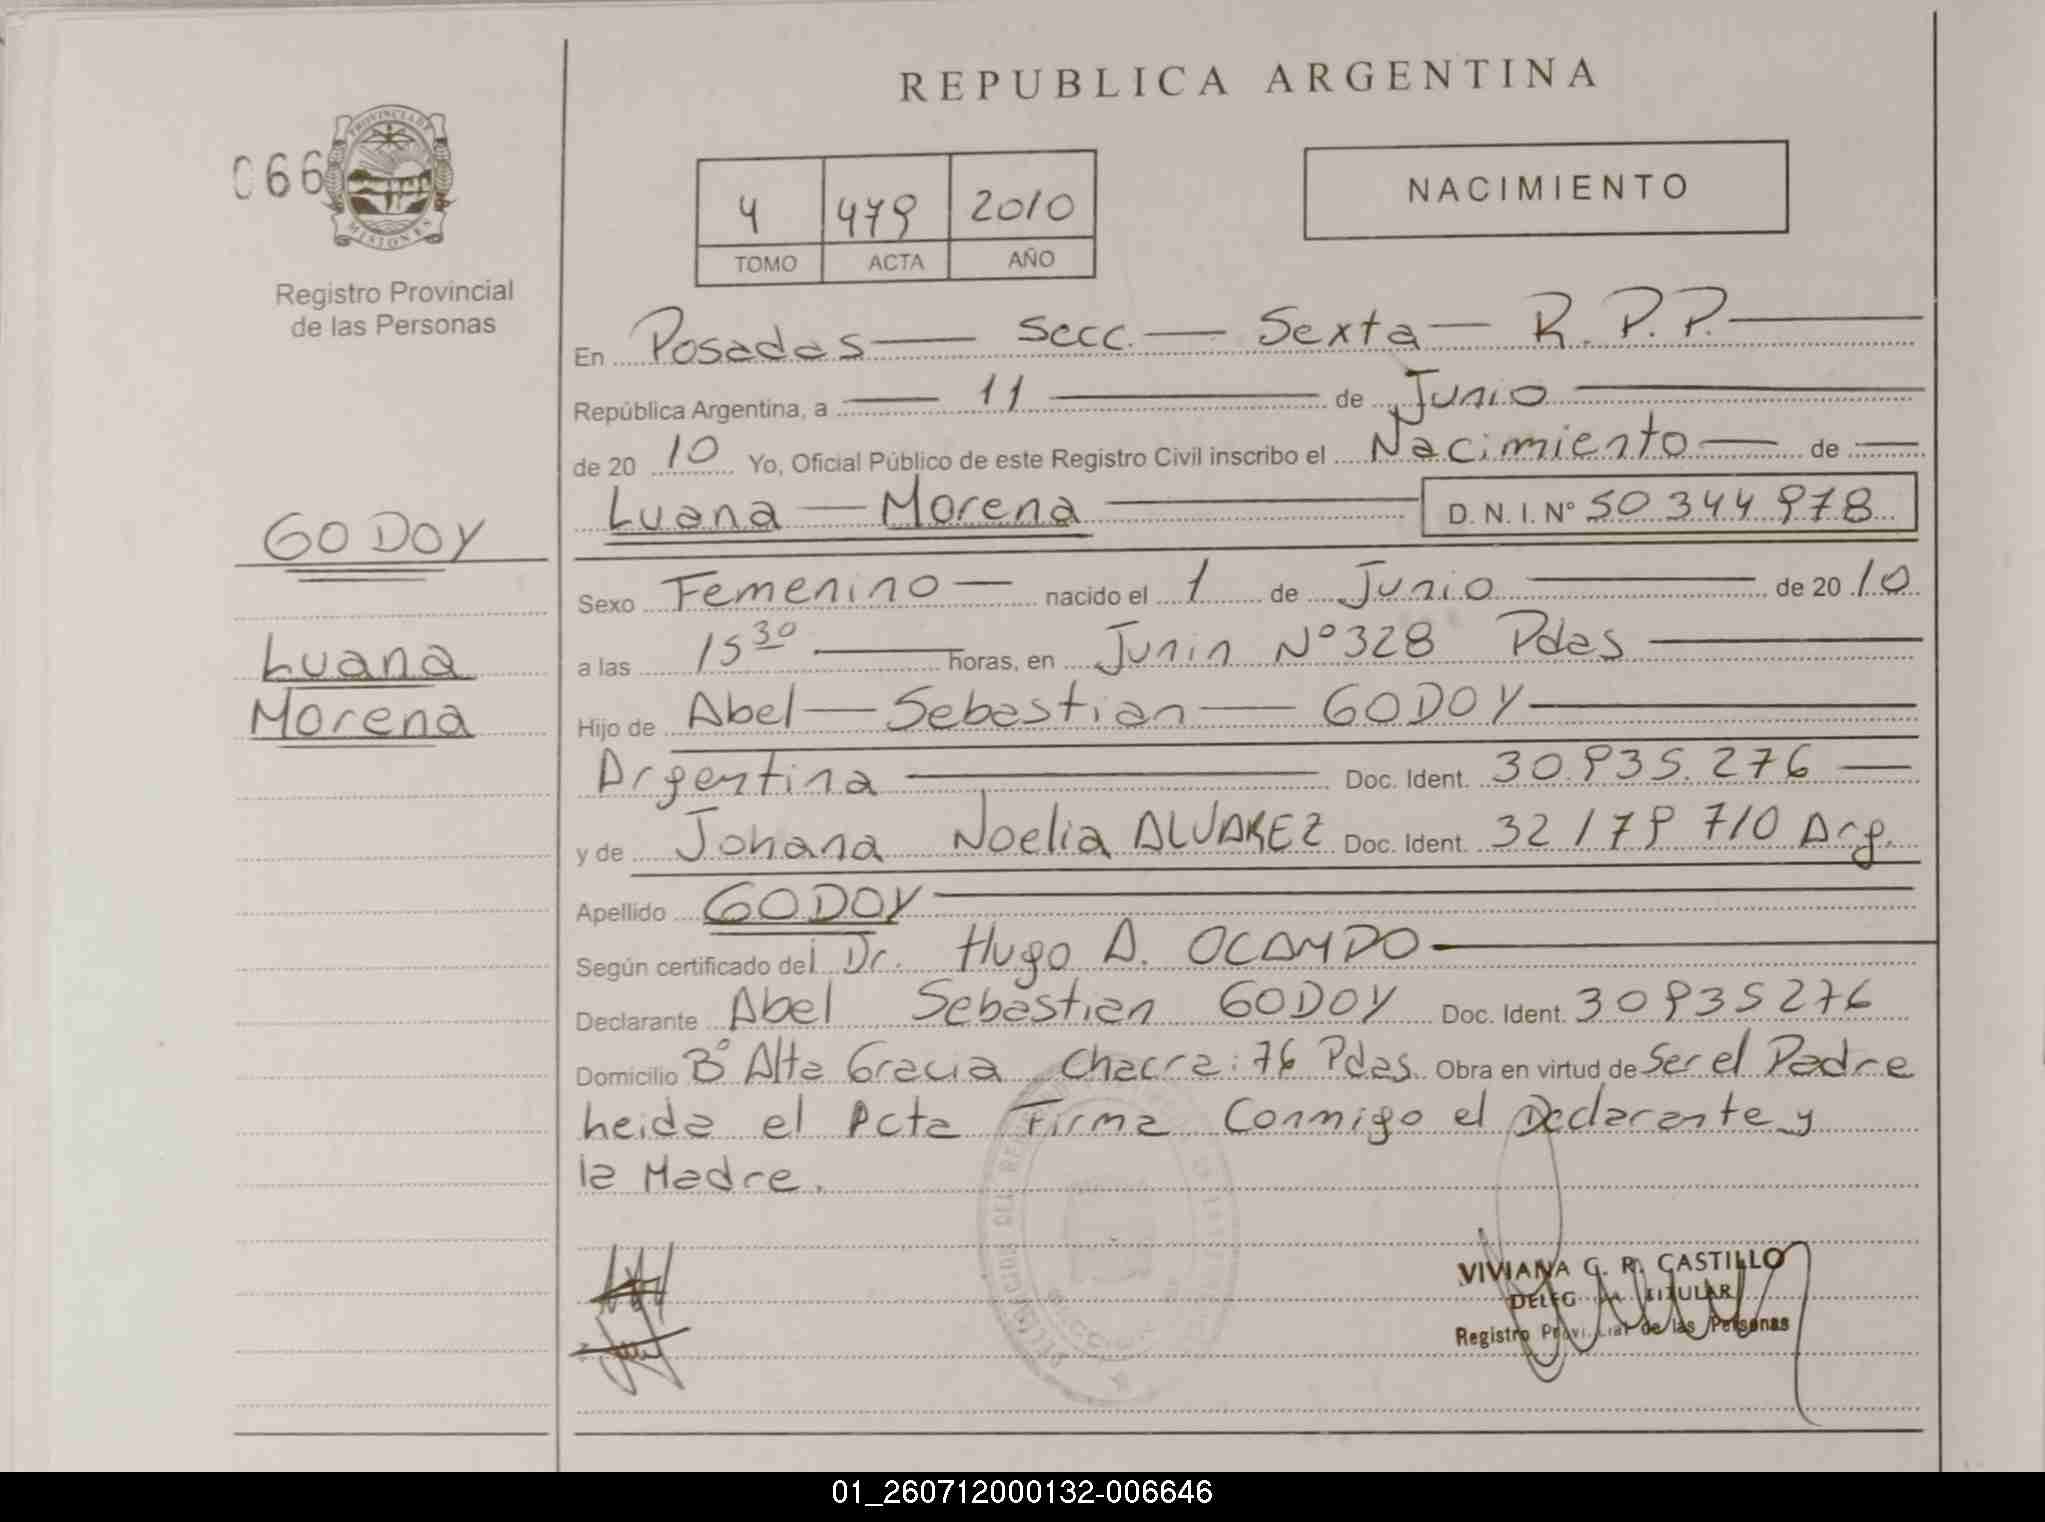 REPUBLICA ARGENTINA
066
PROVINCIA DE MISIONES
Registro Provincial
de las Personas
4 479 2010
TOMO ACTA AÑO
NACIMIENTO
En Posadas — Secc. — Sexta — R.P.P. —
República Argentina, a — 11 — de Junio —
de 20 10 Yo, Oficial Público de este Registro Civil inscribo el Nacimiento — de —
Luana — Morena — D.N.I. Nº 50344978
GODOY
Luana
Morena
Sexo Femenino — nacido el 1 de Junio — de 20 10
a las 15 30 — horas, en Junin Nº 328 Pdas —
Hijo de Abel — Sebastian — GODOY —
Argentina — Doc. Ident. 30.935.276 —
y de Johana Noelia ALVAREZ Doc. Ident. 32179710 Arg.
Apellido GODOY —
Según certificado del Dr. Hugo A. OCAMPO —
Declarante Abel Sebastian GODOY Doc. Ident. 30935276
Domicilio Bº Alta Gracia Chacra: 76 Pdas. Obra en virtud de Ser el Padre
heida el Acta Firma Conmigo el Declarante y
la Madre.
VIVIANA G. R. CASTILLO
TITULAR
Registro Provincial de las Personas
01_260712000132-006646